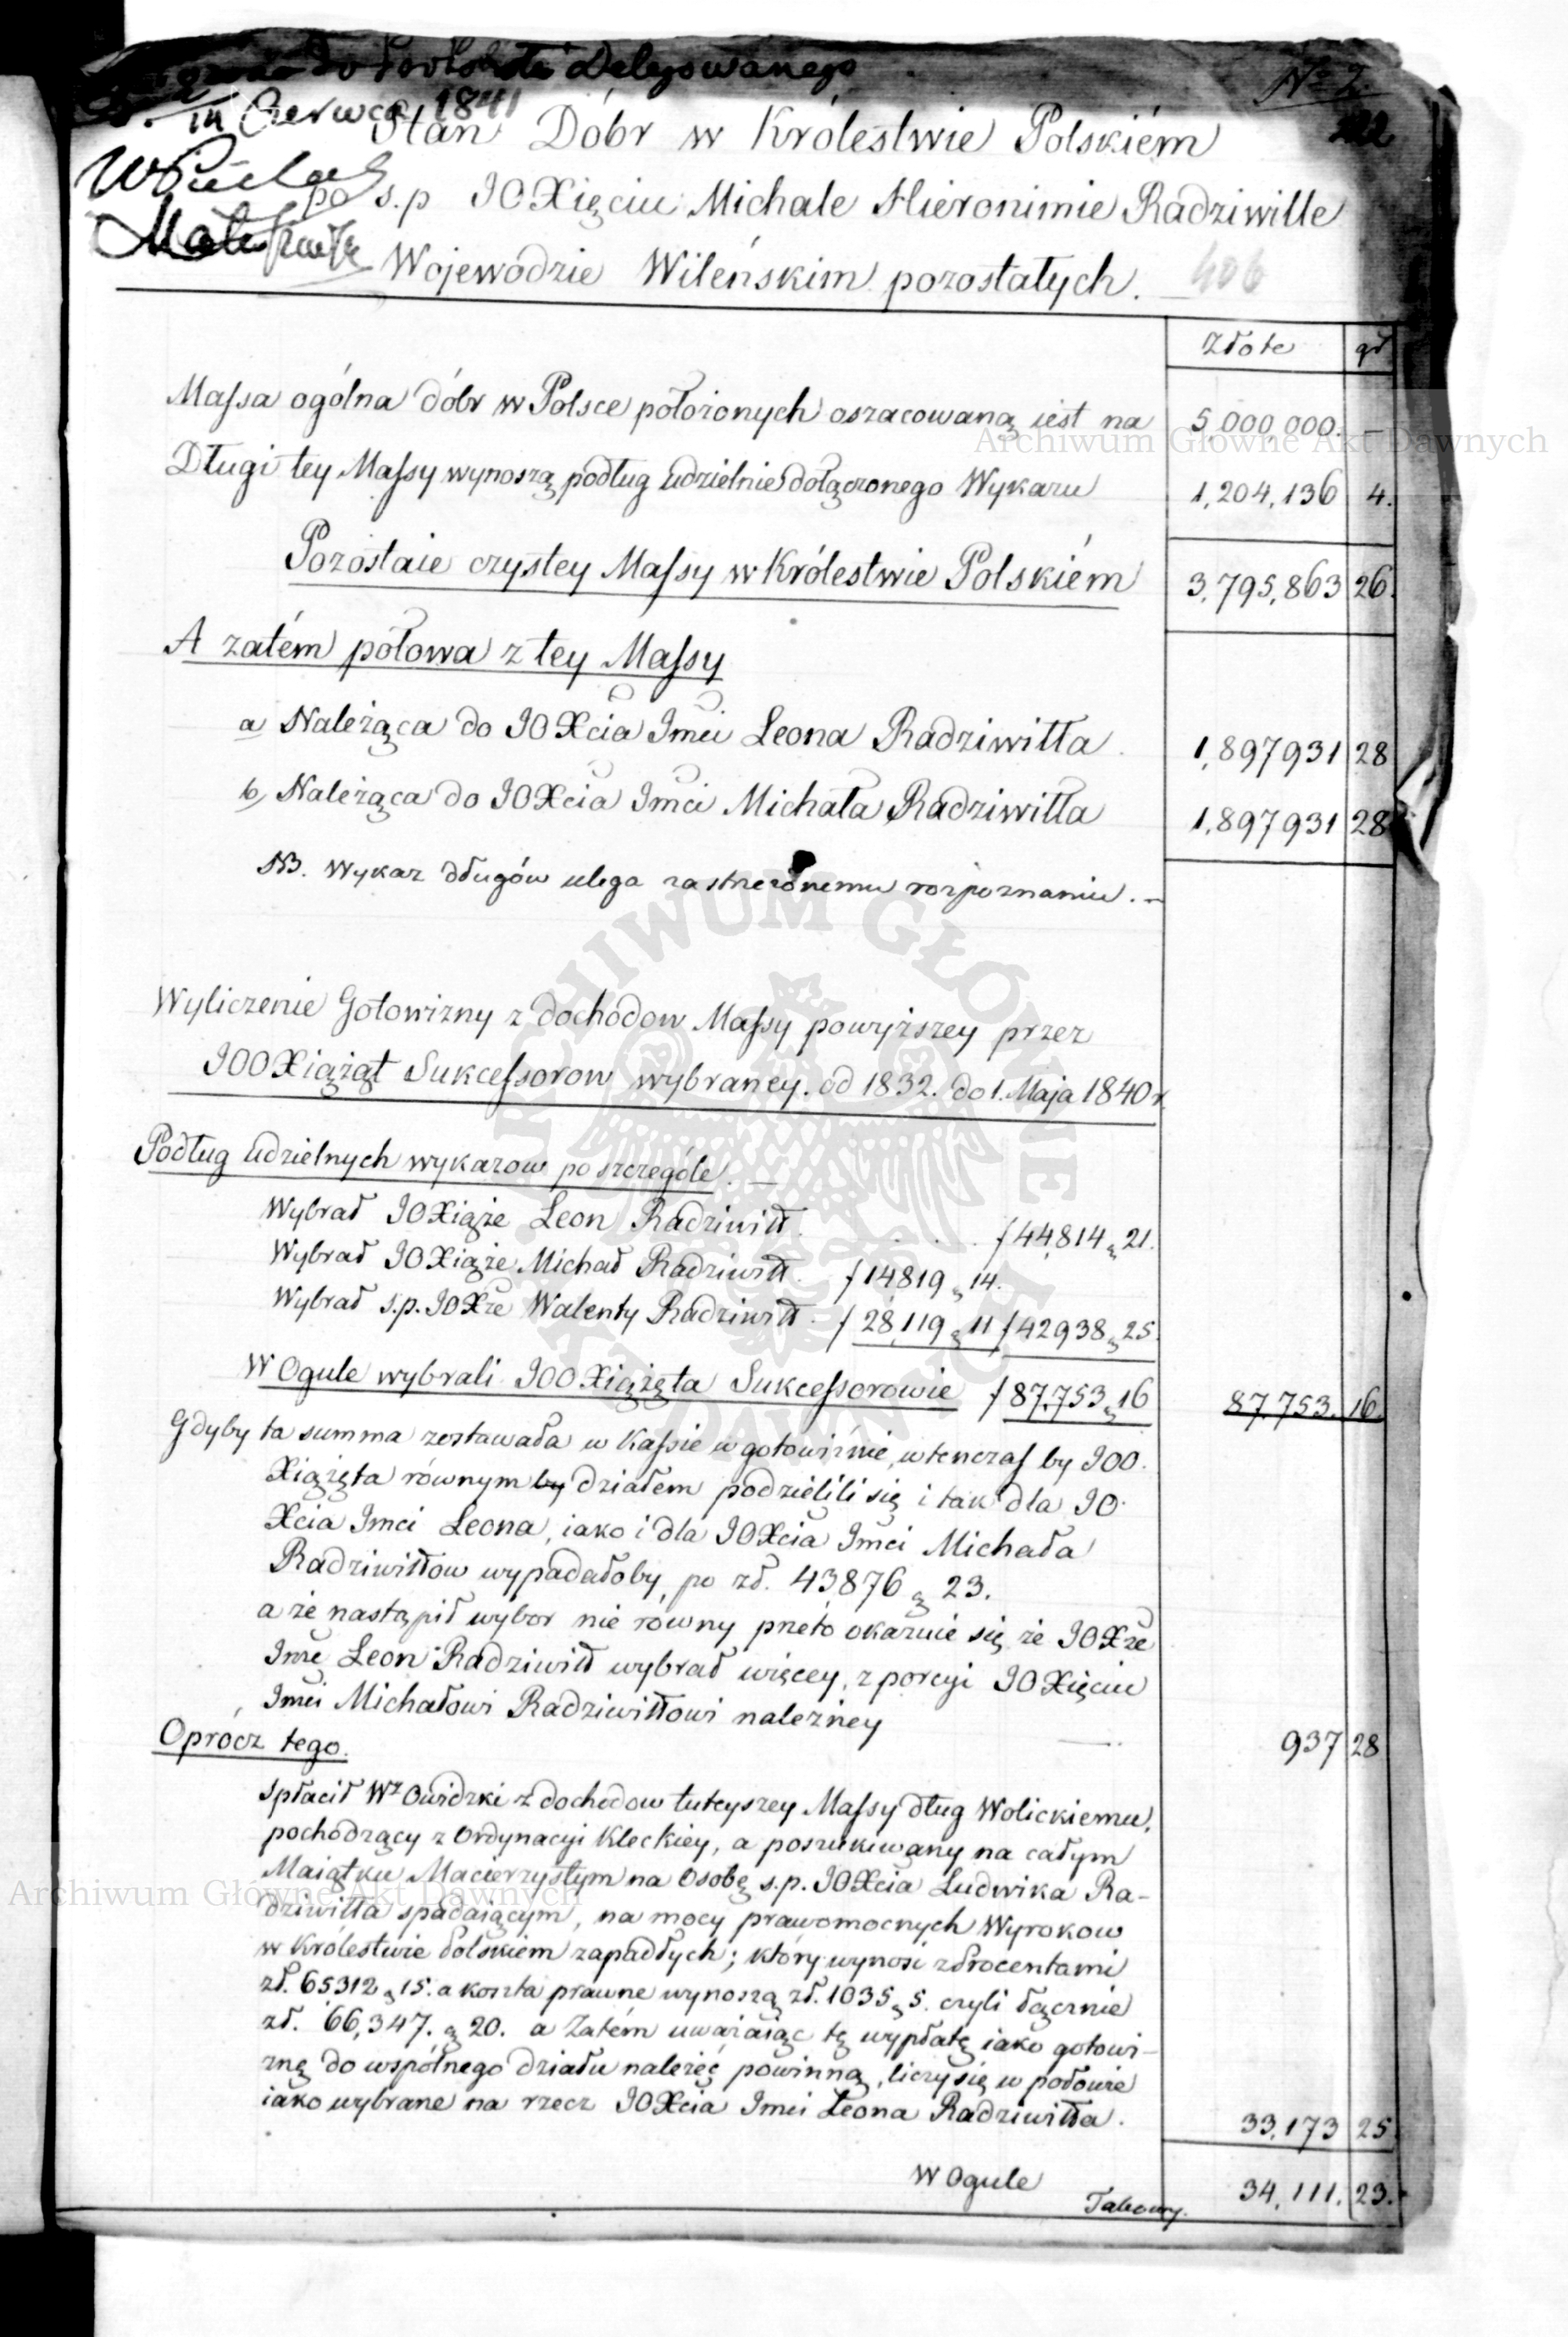 do Protokołu Delegowanego
No 2.
in Czerwca 1841
222
Stan Dóbr w Królestwie Polskiém
po s.p JO Xięciu Michale Hieronimie Radziwille
Wojewodzie Wileńskim pozostałych.
406
Złote gr
Massa ogólna dóbr w Polsce położonych oszacowaną iest na 5,000,000. —
Długi tey Massy wynoszą podług udzielnie dołączonego Wykazu 1,204,136 4.
Pozostaie czystey Massy w Królestwie Polskiém 3,795,863 26.
A zatém połowa z tey Massy
a Należąca do JO Xcia Jmci Leona Radziwiłła 1,897931 28
b, Należąca do JO Xcia Jmci Michała Radziwiłła 1,897931 28
NB. Wykaz długów ulega zastrzeżonemu rozpoznaniu. —
Wyliczenie Gotowizny z dochodow Massy powyższey przez
JOO Xiążąt Sukcessorow wybraney. od 1832. do 1. Maja 1840 r.
Podług udzielnych wykazow po szczególe. —
Wybrał JO Xiąże Leon Radziwiłł . . . . f 44,814 g 21.
Wybrał JO Xiąże Michał Radziwiłł. f 14819 g 14.
Wybrał s.p. JO Xże Walenty Radziwiłł. f 28,119 g 11 f 42938 g 25.
W Ogule wybrali JOO Xiążęta Sukcessorowie f 87,753 g 16 87,753. 16.
Gdyby ta summa zostawała w Kassie w gotowiźnie, w tenczas by JOO.
Xiążęta równym by działem podzielili się i tak dla JO.
Xcia Jmci Leona, iako i dla JO Xcia Jmci Michała
Radziwiłłow wypadałoby, po zł. 43876 g 23.
a że nastąpił wybor nie równy przeto okazuie się że JO Xże
Jmć Leon Radziwiłł wybrał więcey, z porcyi JO Xięciu
Jmci Michałowi Radziwiłłowi należney —. 937 28
Oprócz tego.
spłacił Wż Owidzki z dochodow tuteyszey Massy dług Wolickiemu,
pochodzący z Ordynacyi Kleckiey, a poszukiwany na całym
Maiątku Macierzystym na Osobę s.p. JO Xcia Ludwika Ra-
dziwiłła spadaiącym, na mocy prawomocnych Wyrokow
w Królestwie Polskiem zapadłych; który wynosi z Procentami
zł. 65312 g 15. a koszta prawne wynoszą zł. 1035 g 5. czyli łącznie
zł. 66,347. g 20. a Zatém uważaiąc tę wypłatę iako gotowi-
znę do wspólnego działu należeć powinną, liczy się w połowie
iako wybrane na rzecz JO Xcia Jmci Leona Radziwiłła. 33,173 25
W Ogule 34,111. 23.
Archiwum Główne Akt Dawnych
Archiwum Główne Akt Dawnych
ARCHIWUM GŁÓWNE AKT DAWNYCH